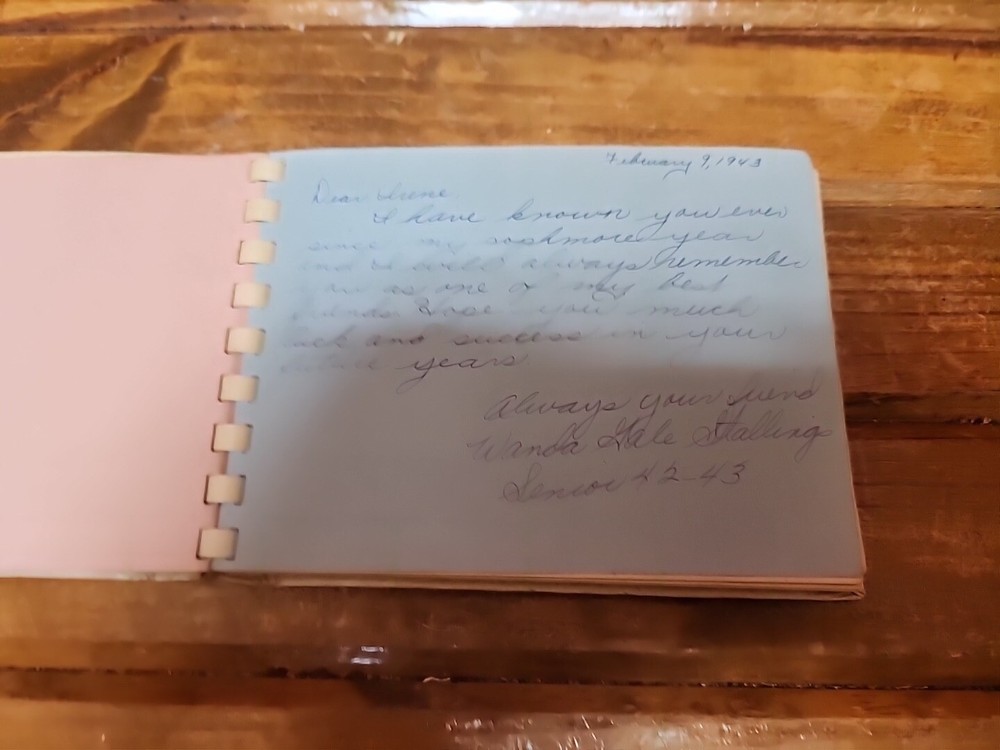 February 9, 1943
Dear Irene
I have known you ever
since my soshmore year
and I will always remember
you as one of my best
friends. Hope you much
luck and success in your
future years
Always your friend
Wanda Gale Stallings
Senior 42-43